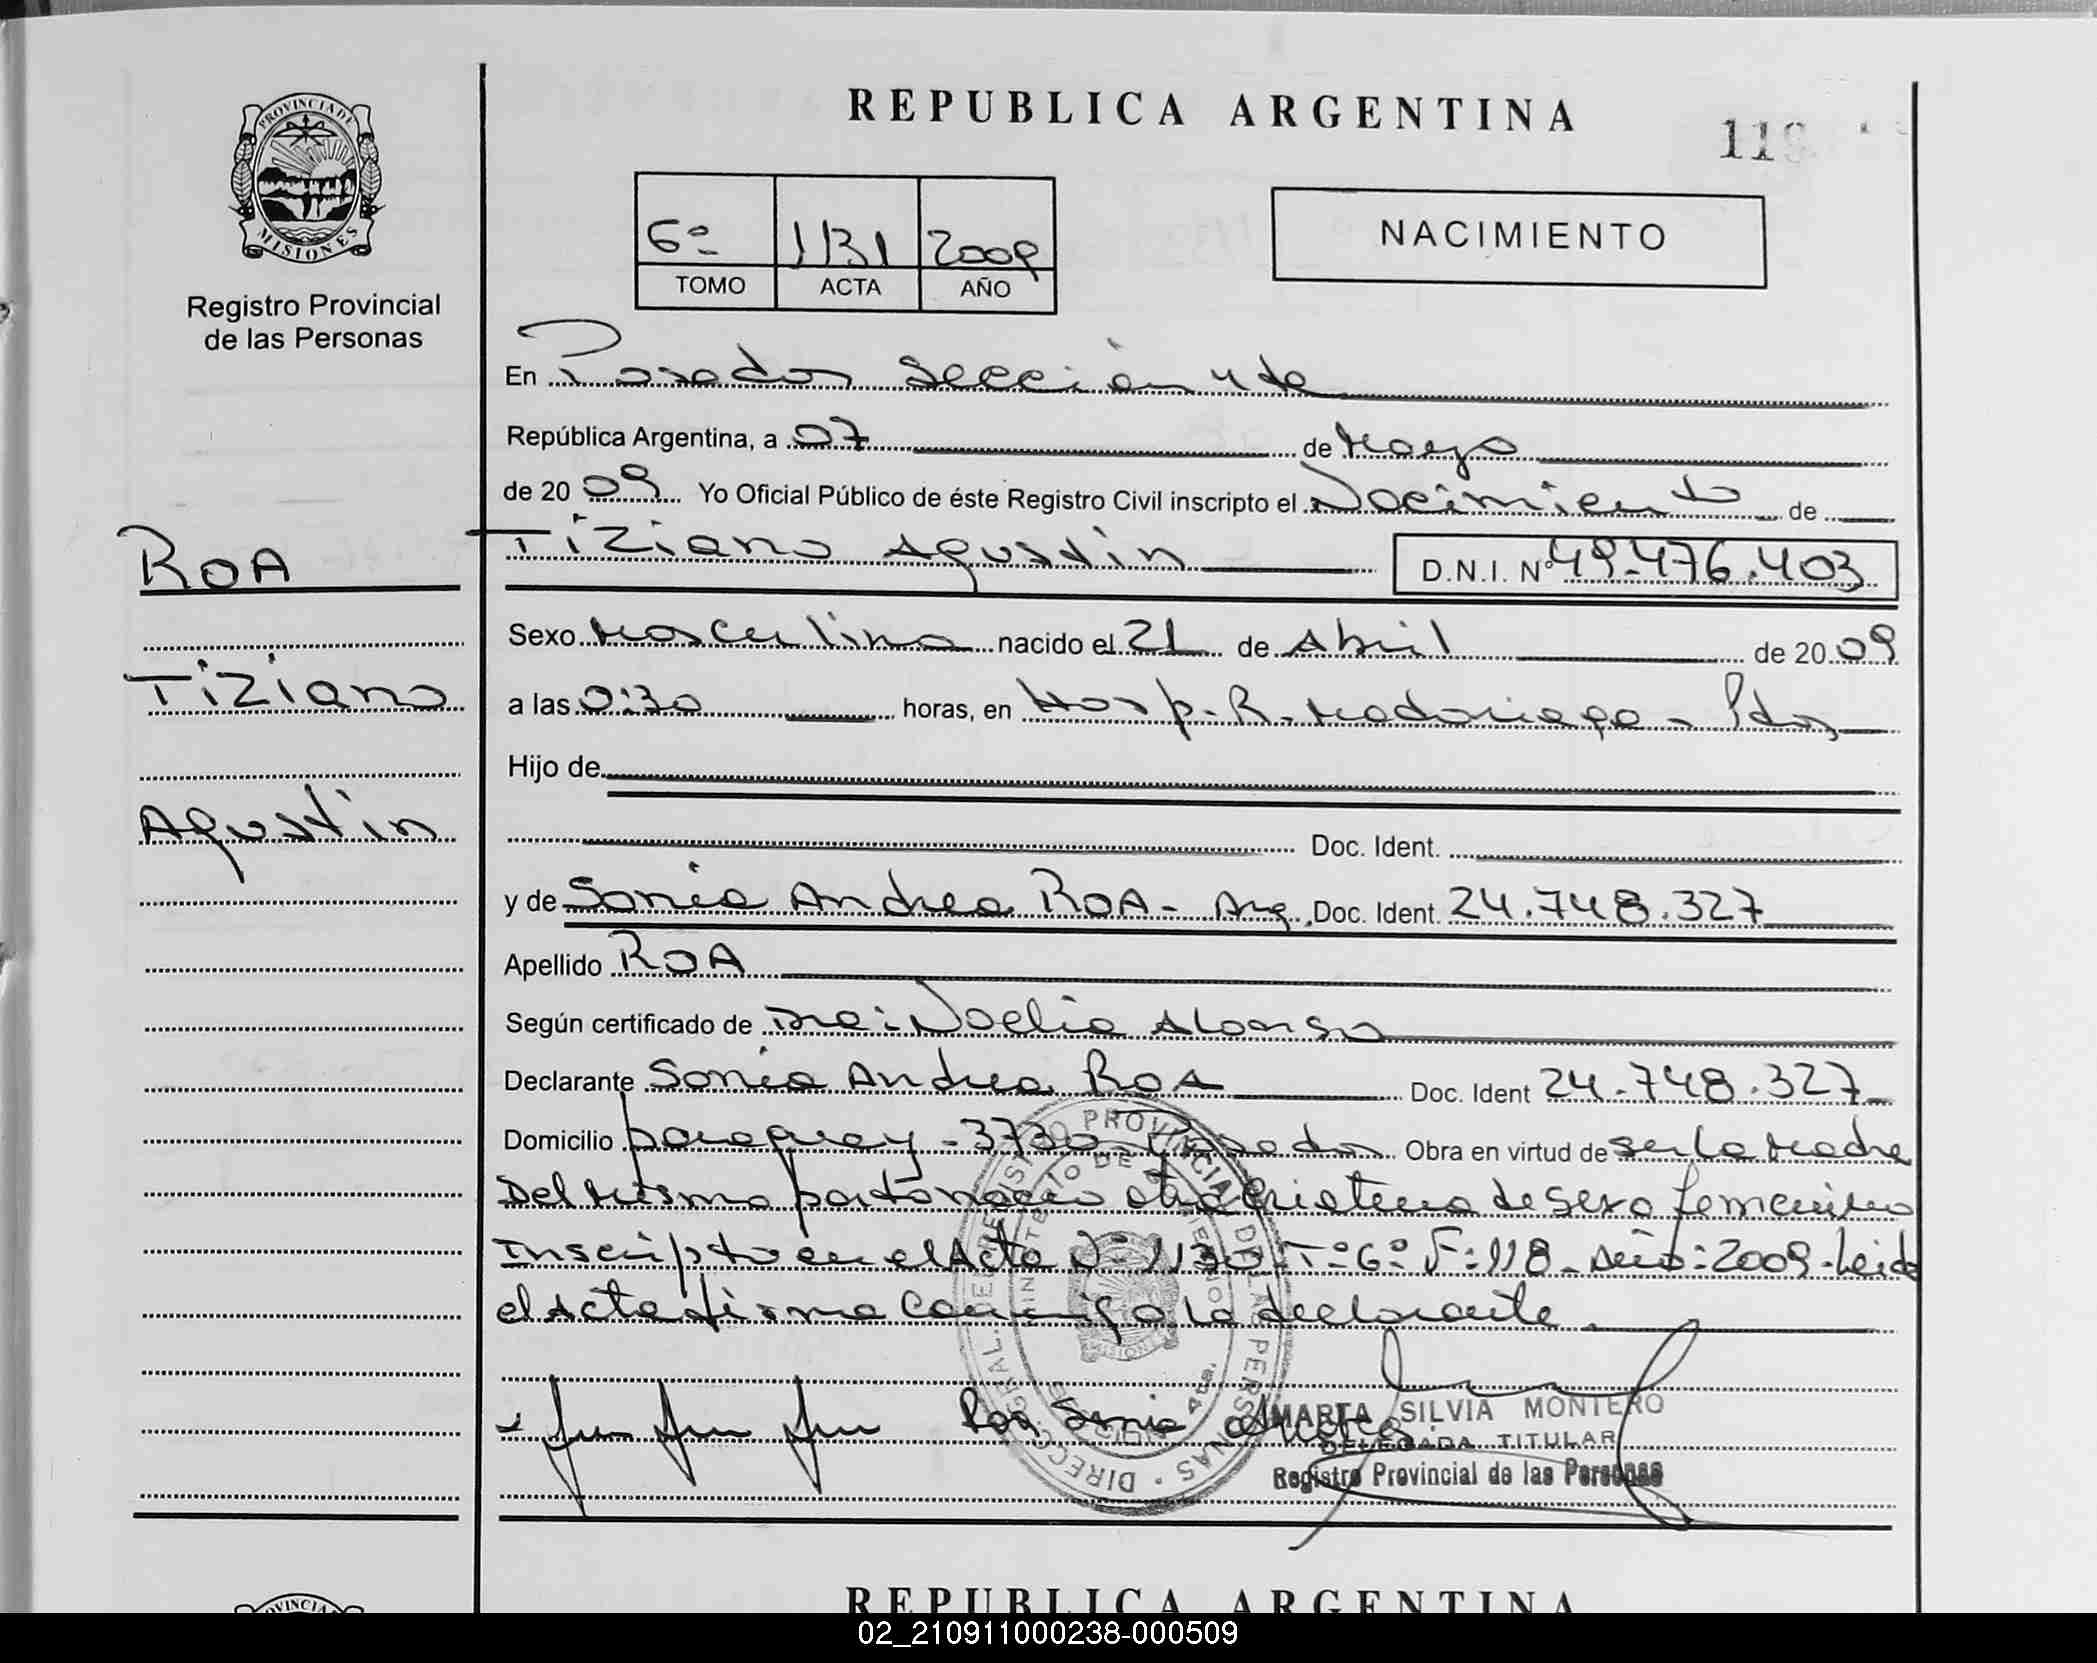 REPUBLICA ARGENTINA
119
PROVINCIA DE
MISIONES
Registro Provincial
de las Personas
6º 1131 2009
TOMO ACTA AÑO
NACIMIENTO
En Posadas Sección 4ta
República Argentina, a 07 de Mayo
de 20 09 Yo Oficial Público de éste Registro Civil inscripto el Nacimiento de
Tiziano Agustin D.N.I. Nº 49.476.403
ROA
Tiziano
Agustin
Sexo Masculino nacido el 21 de Abril de 20 09
a las 0:30 horas, en Hosp. R. Madariaga - Pdas
Hijo de
Doc. Ident.
y de Sonia Andrea ROA - Arg. Doc. Ident. 24.748.327
Apellido ROA
Según certificado de Dra: Noelia Alonso
Declarante Sonia Andrea ROA Doc. Ident 24.748.327
Domicilio paraguay - 3730 - Posadas Obra en virtud de ser la Madre
Del Mismo parto nacio otra criatura de sexo femenino
Inscripto en el Acta Nº 1130 Tº 6º F: 118 - Año: 2009 - Leida
el Acta firma conmigo la declarante.
Roa Sonia Andrea
MARTA SILVIA MONTERO
DELEGADA TITULAR
Registro Provincial de las Personas
REPUBLICA ARGENTINA
02_210911000238-000509